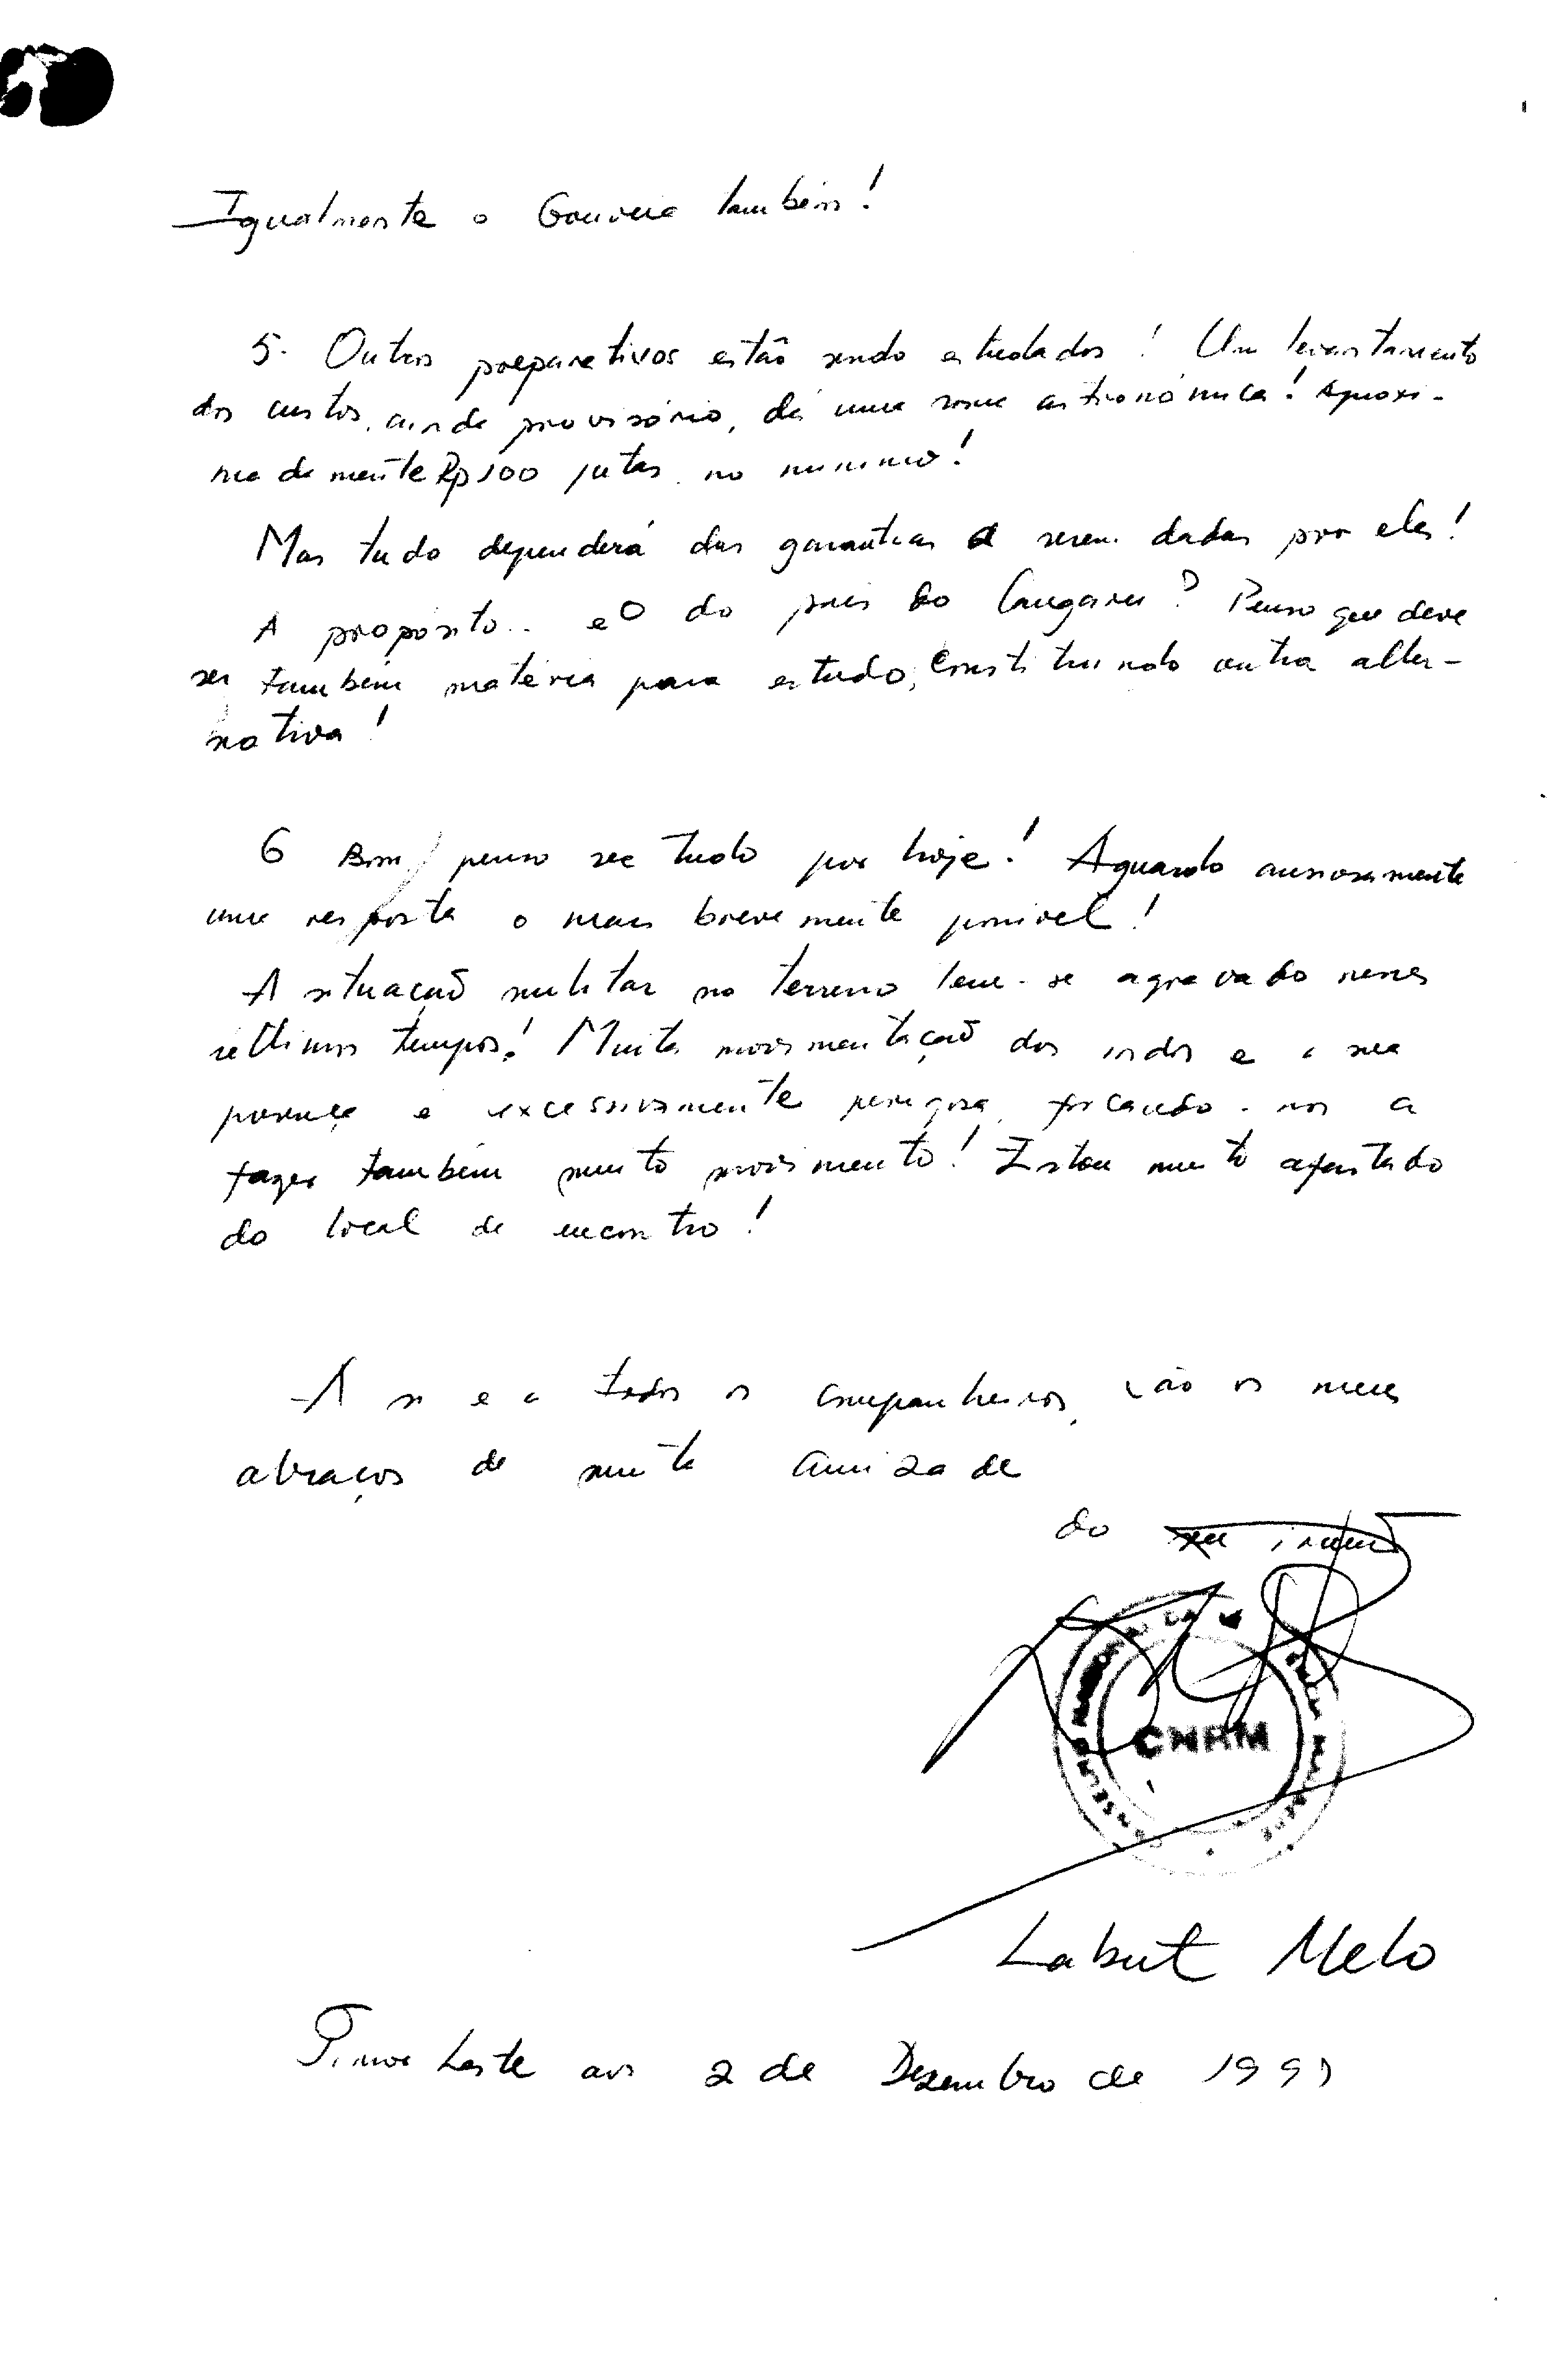 Igualmente o Gouveia também!
5. Outros preparativos estão sendo estudados! Um levantamento
dos custos, ainda provisório, dá uma soma astronómica! Aproxi-
madamente Rp 100 jutas, no mínimo!
Mas tudo dependerá das garantias a serem dadas por eles!
A propósito.. e o do país do Canguru? Penso que deve
ser também matéria para estudo, constituindo outra alter-
nativa!
6 Bom, penso ser tudo por hoje! Aguardo ansiosamente
uma resposta o mais brevemente possível!
A situação militar no terreno tem-se agravado nesses
últimos tempos! Muita movimentação dos indos e a sua
presença é excessivamente perigosa, forçando-nos a
fazer também muito movimento! Estou muito afastado
do local de encontro!
A si e a todos os companheiros, vão os meus
abraços de muita amizade
do seu irmão
CNRM
Labut Melo
Timor Leste aos 2 de Dezembro de 1991